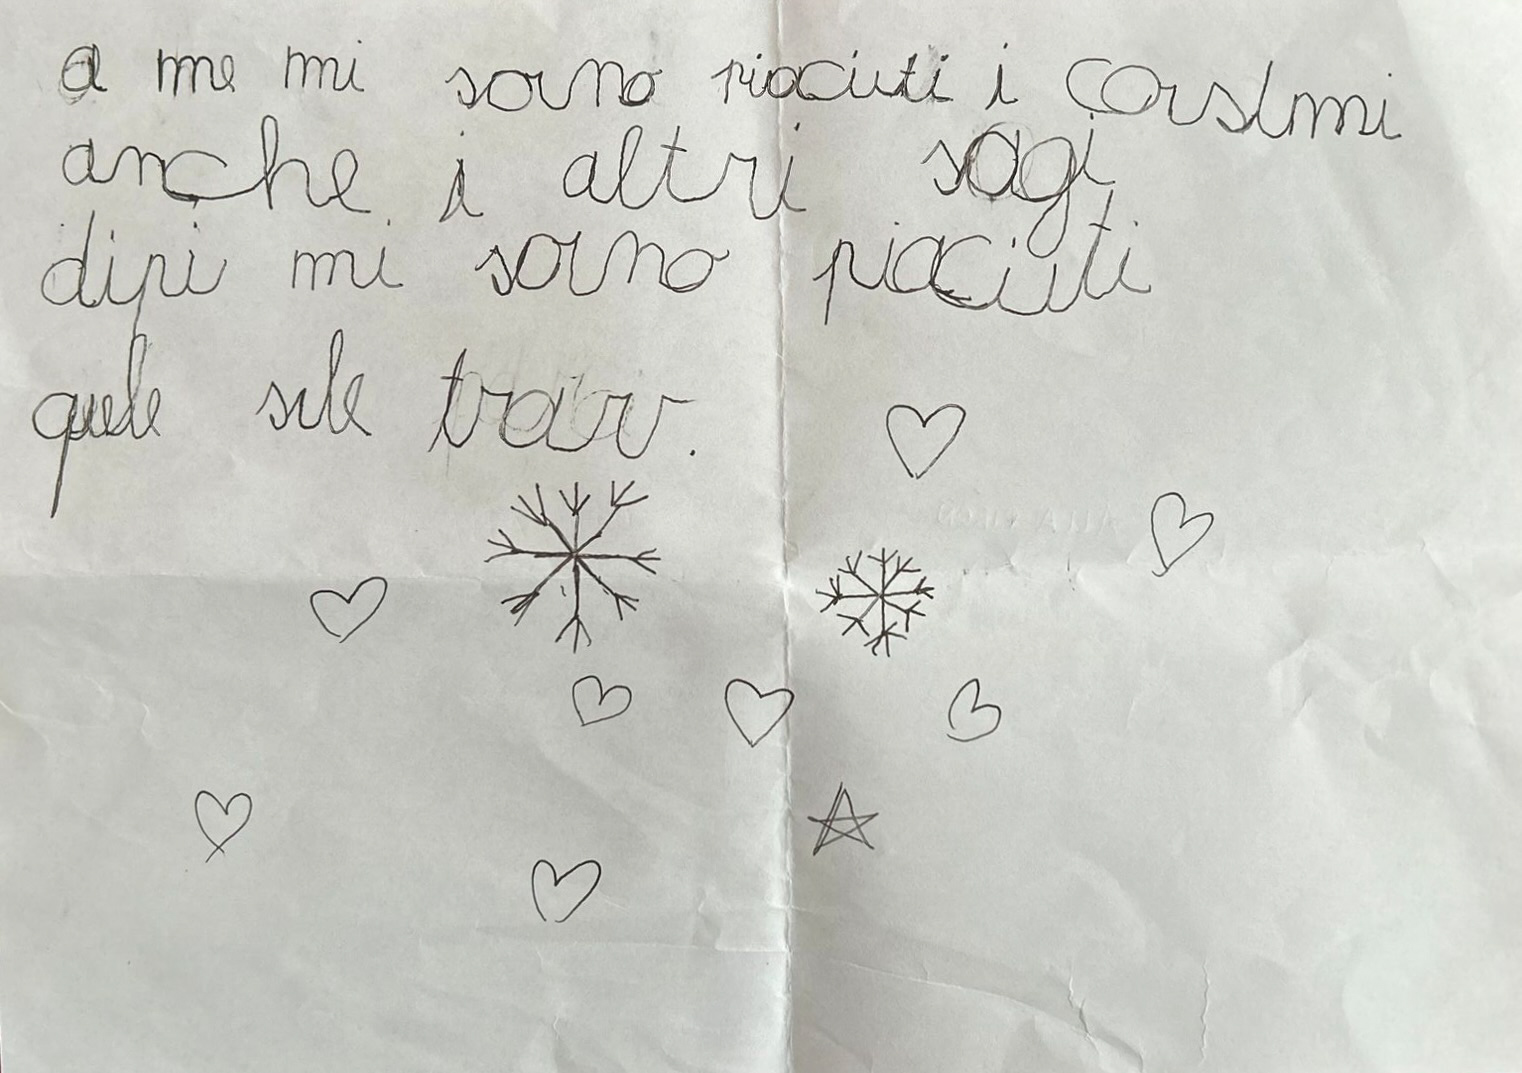 a me mi sono piaciuti i corslmi
anche i altri sagi
dipi mi sono piaciuti
quele sile trav.